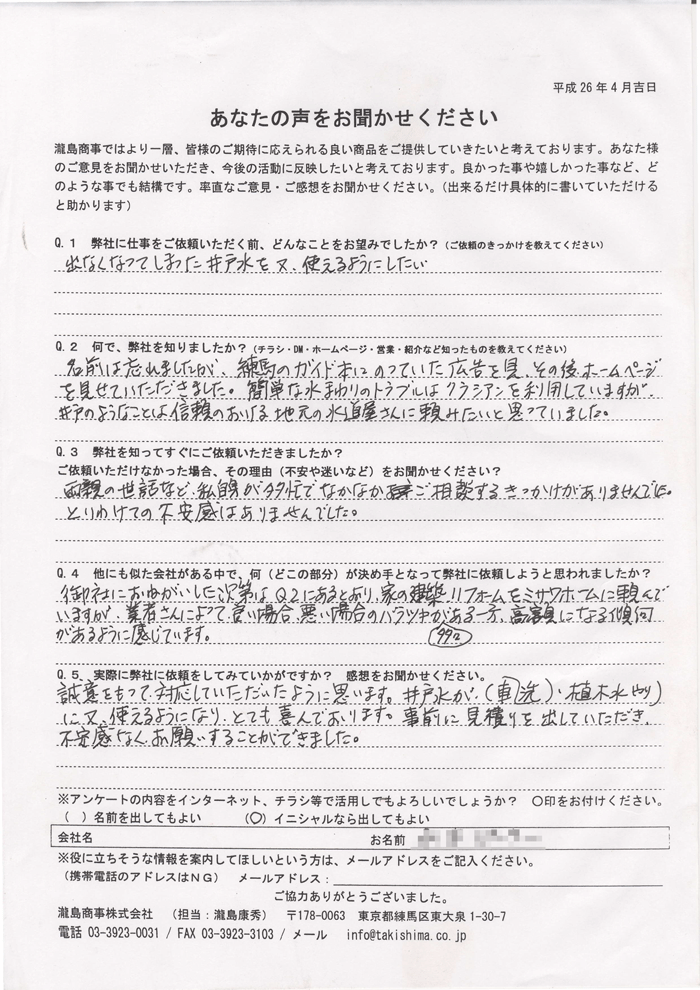 平成26年4月吉日
あなたの声をお聞かせください
瀧島商事ではより一層、皆様のご期待に応えられる良い商品をご提供していきたいと考えております。あなた様
のご意見をお聞かせいただき、今後の活動に反映したいと考えております。良かった事や嬉しかった事など、ど
のような事でも結構です。率直なご意見・ご感想をお聞かせください。（出来るだけ具体的に書いていただける
と助かります）
Q.1 弊社に仕事をご依頼いただく前、どんなことをお望みでしたか？（ご依頼のきっかけを教えてください）
出なくなってしまった井戸水を又、使えるようにしたい
Q.2 何で、弊社を知りましたか？（チラシ・DM・ホームページ・営業・紹介など知ったものを教えてください）
名前は忘れましたが、練馬のガイド本にのっていた広告を見、その後ホームページ
を見せていただきました。簡単な水まわりのトラブルはクラシアンを利用していますが、
井戸のようなことは信頼のおける地元の水道屋さんに頼みたいと思っていました。
Q.3 弊社を知ってすぐにご依頼いただきましたか？
ご依頼いただけなかった場合、その理由（不安や迷いなど）をお聞かせください？
両親の世話など、私自身が多忙でなかなかご相談するきっかけがありませんでした。
とりわけての不安感はありませんでした。
Q.4 他にも似た会社がある中で、何（どこの部分）が決め手となって弊社に依頼しようと思われましたか？
御社におねがいした次第はQ2にあるとおり、家の建築リフォームをミサワホームに頼んで
いますが、業者さんによって良い場合、悪い場合のバラツキがある一方、高額になる傾向
があるように感じています。
Q.5、実際に弊社に依頼をしてみていかがですか？ 感想をお聞かせください。
誠意をもって対応していただいたように思います。井戸水が、(車洗)・植木水やり)
に又、使えるようになり、とても喜んでおります。事前に見積りを出していただき、
不安感なくお願いすることができました。
※アンケートの内容をインターネット、チラシ等で活用しでもよろしいでしょうか？ ○印をお付けください。
（ ）名前を出してもよい （○）イニシャルなら出してもよい
会社名 お名前
※役に立ちそうな情報を案内してほしいという方は、メールアドレスをご記入ください。
（携帯電話のアドレスはNG） メールアドレス：
ご協力ありがとうございました。
瀧島商事株式会社 （担当：瀧島康秀） 〒178-0063 東京都練馬区東大泉1-30-7
電話 03-3923-0031 / FAX 03-3923-3103 / メール info@takishima.co.jp